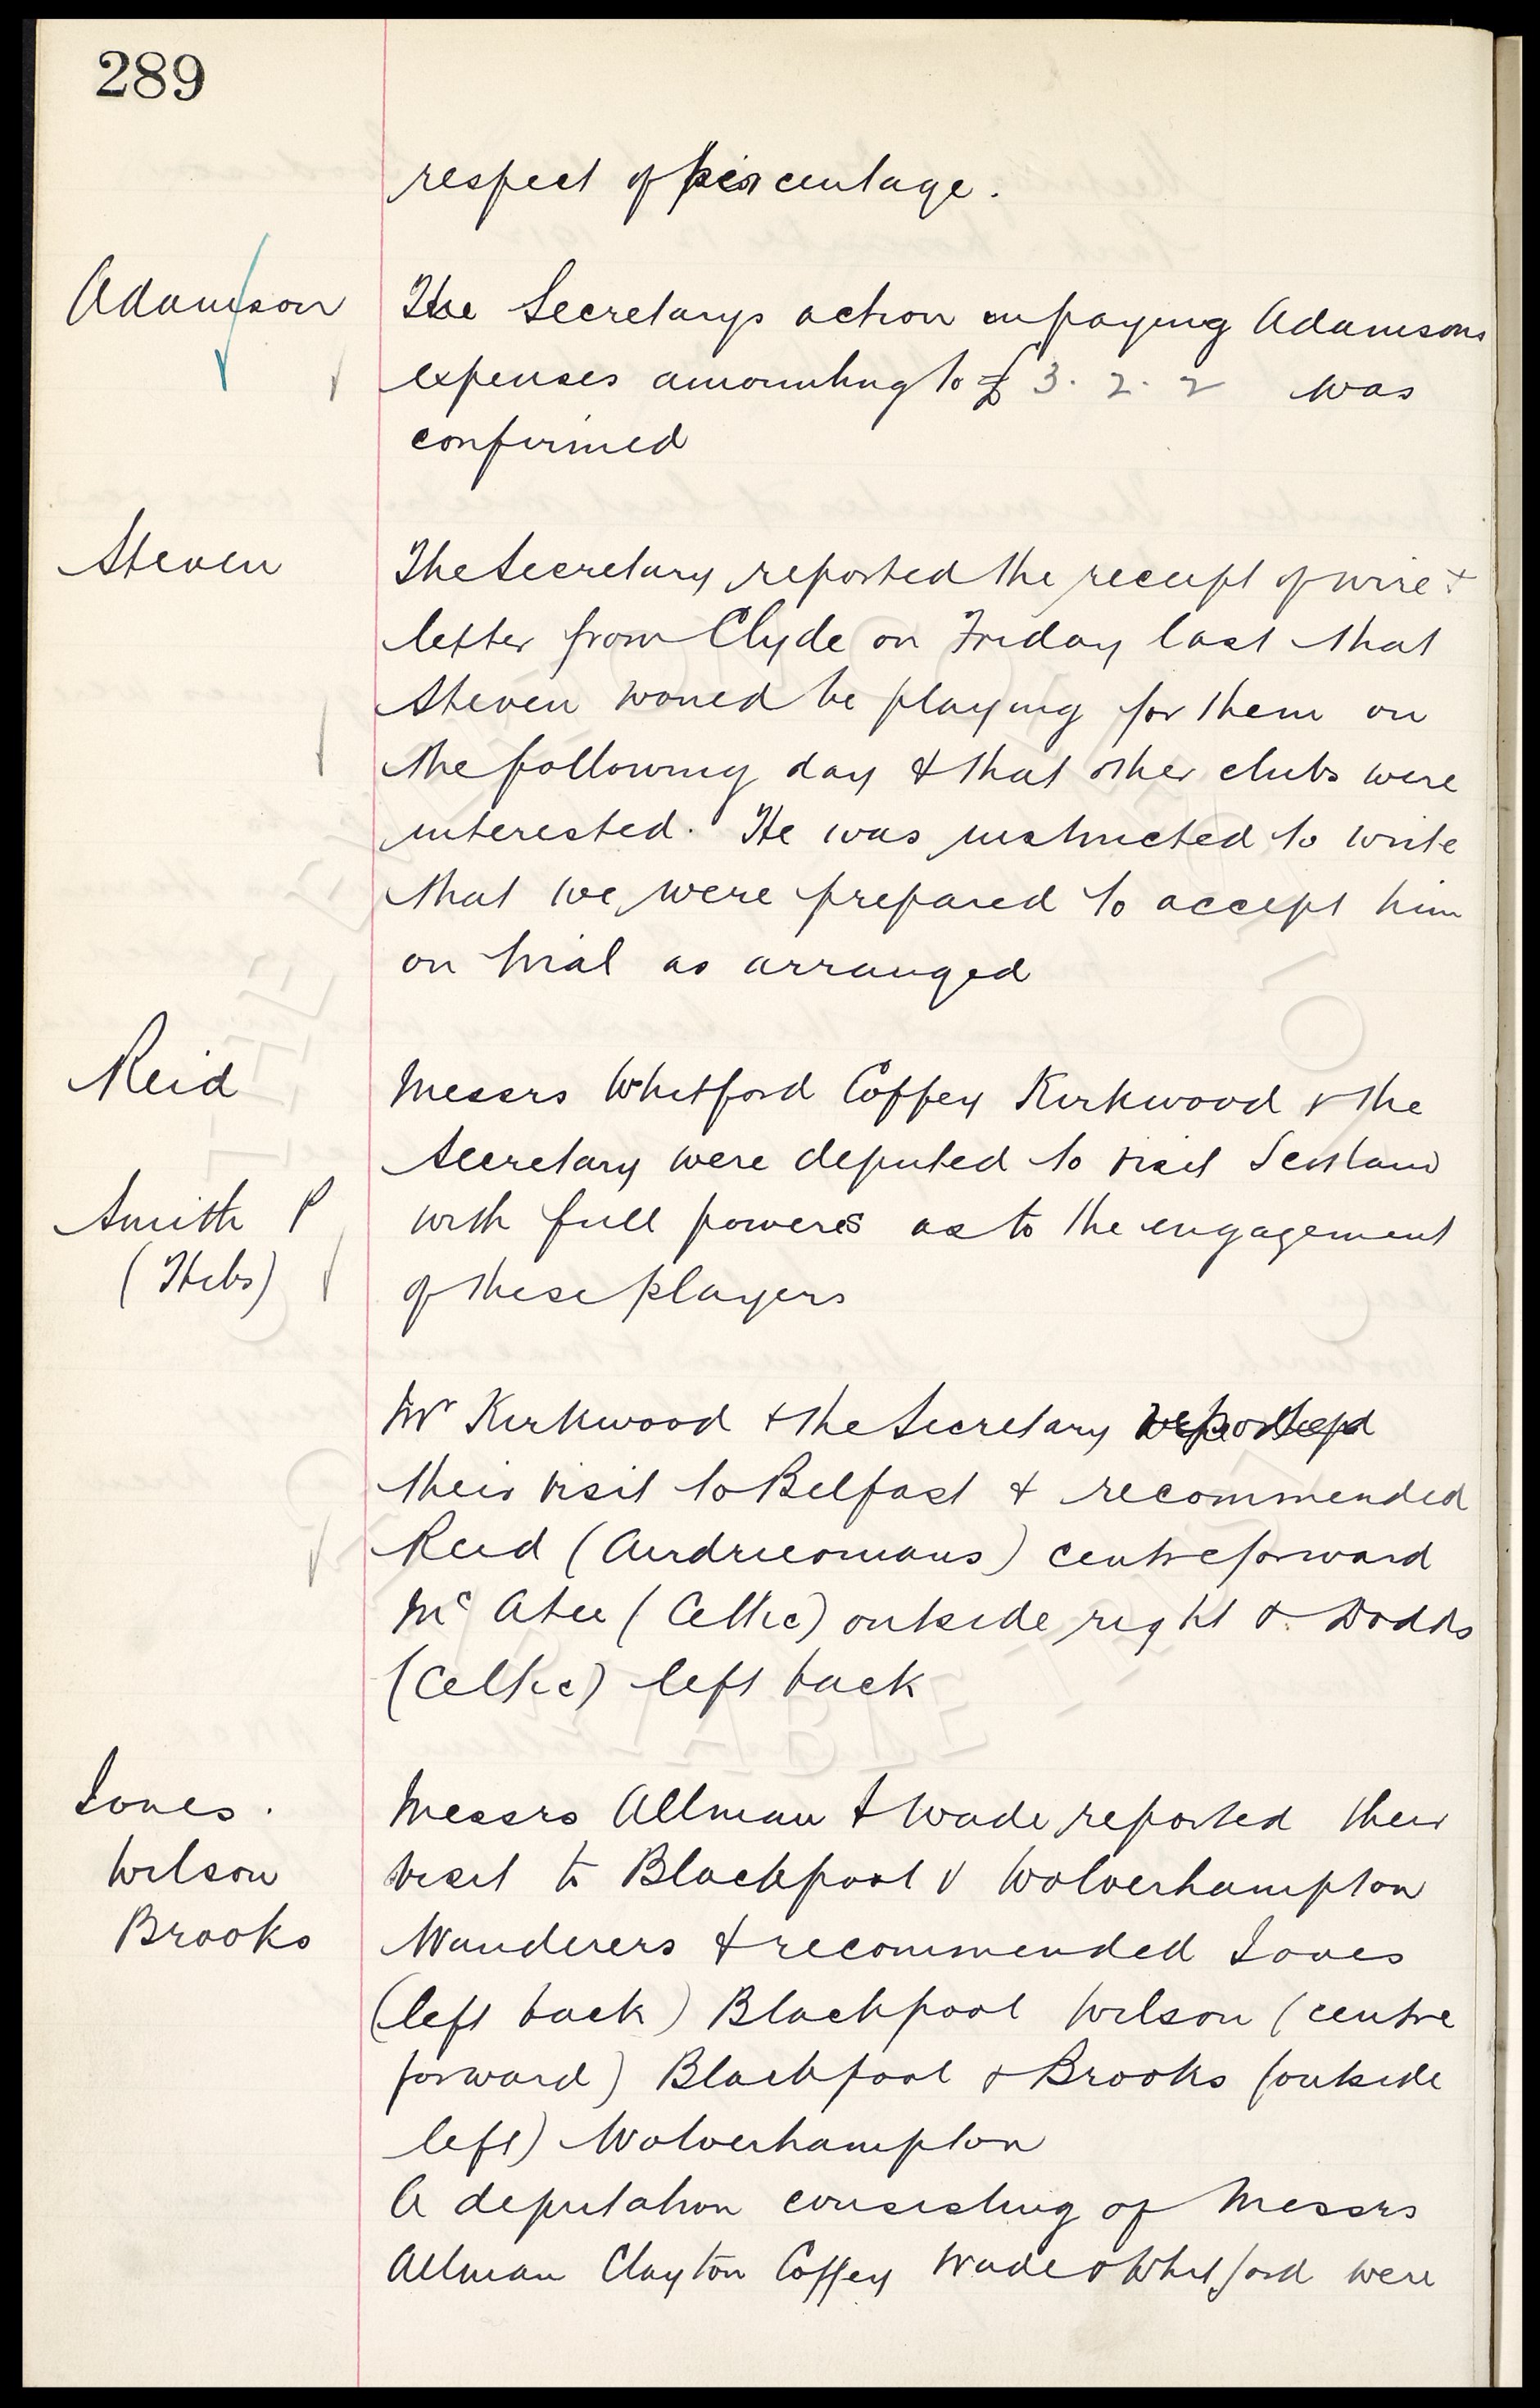 289
respect of percentage.
Adamson
The Secretarys action in paying Adamsons
expenses amounting to £3. 2. 2 was
confirmed
Steven
The Secretary reported the receipt of wire &
letter from Clyde on Friday last that
Steven would be playing for them on
the following day & that other clubs were
interested. He was instructed to write
that we were prepared to accept him
on trial as arranged
Reid
Messrs Whitford Coffey Kirkwood & the
Secretary were deputed to visit Scotland
Smith P
with full powers as to the engagement
(Hibs)
of these players
Mr Kirkwood & the Secretary reported
their visit to Belfast & recommended
Reid (Airdrieonians) centreforward
Mc Atee (Celtic) outside right & Dodds
(Celtic) left back
Jones.
Messrs Allman & Wade reported their
Wilson
visit to Blackpool v Wolverhampton
Brooks
Wanderers & recommended Jones
(left back) Blackpool Wilson (centre
forward) Blackpool & Brooks (outside
left) Wolverhampton
A deputation consisting of Messrs
Allman Clayton Coffey Wade & Whitford were